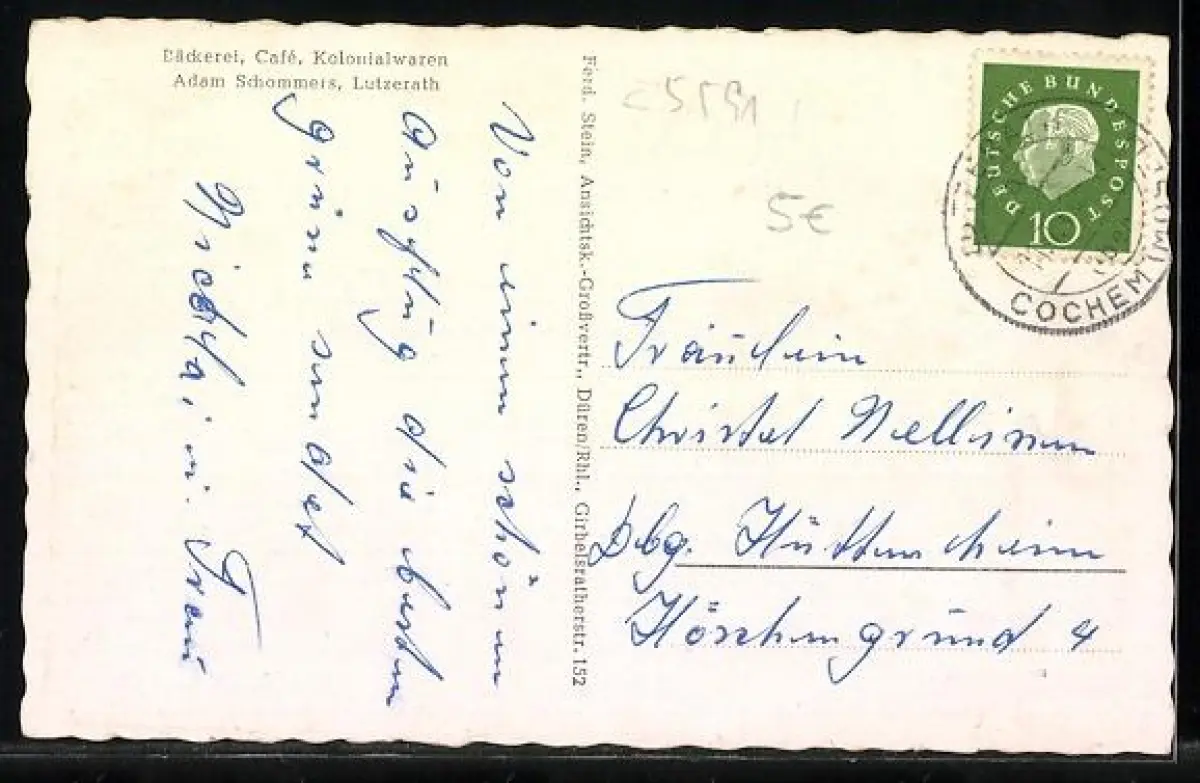 Bäckerei, Café, Kolonialwaren
Adam Schommers, Lutzerath
Von einem schönen
Ausflug die besten
Grüße sendet
u. Frau
Ferd. Stein, Ansichtsk.-Großvertr., Düren/Rhl., Girbelsratherstr. 152
5€
DEUTSCHE BUNDESPOST
10
COCHEM
Fräulein
Christel
Dbg. Hüttenheim
4